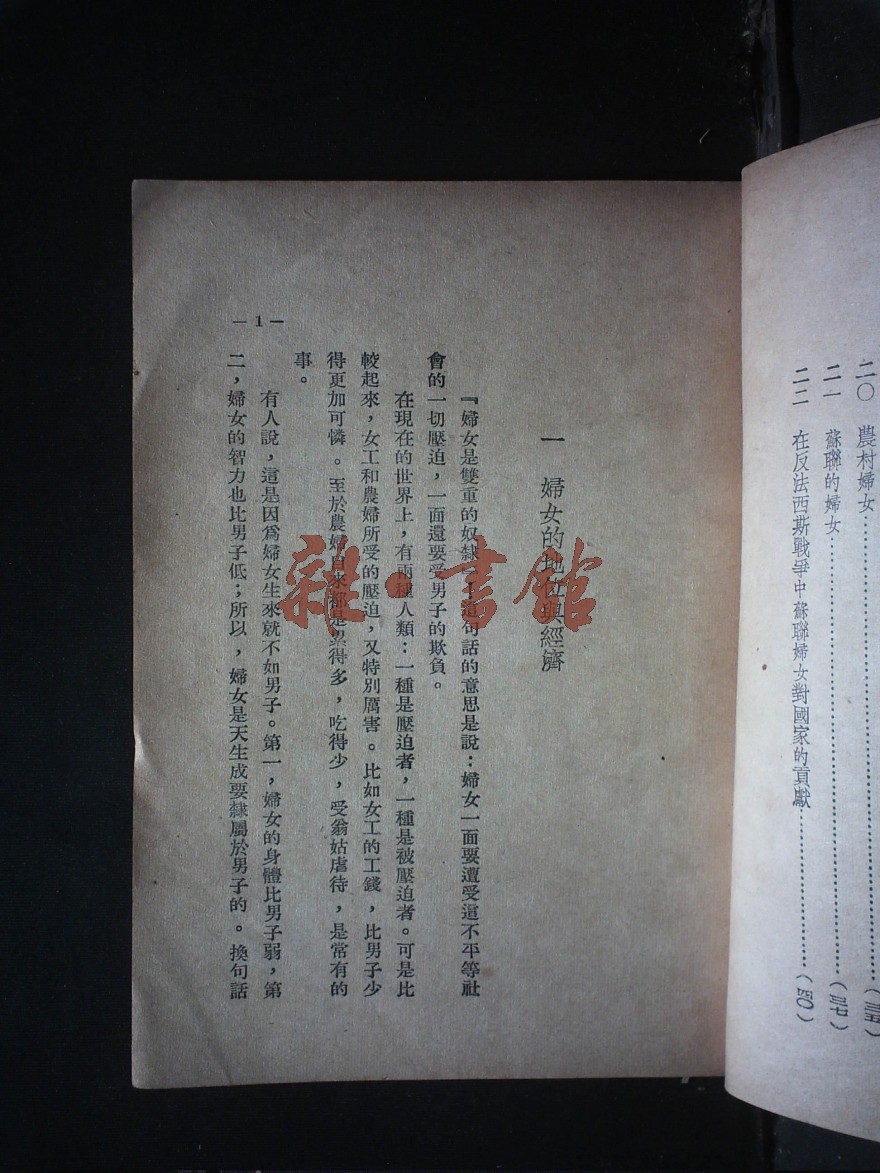 二〇 農村婦女……………………(三五)
二一 蘇聯的婦女……………………(三七)
二二 在反法西斯戰爭中蘇聯婦女對國家的貢獻…………(四〇)
一 婦女的地位與經濟
『婦女是雙重的奴隸』—這句話的意思是說：婦女一面要遭受這不平等社
會的一切壓迫，一面還要受男子的欺負。
在現在的世界上，有兩種人類：一種是壓迫者，一種是被壓迫者。可是比
較起來，女工和農婦所受的壓迫，又特別厲害。比如女工的工錢，比男子少
得更加可憐。至於農婦自來都是累得多，吃得少，受翁姑虐待，是常有的
事。
有人說，這是因爲婦女生來就不如男子。第一，婦女的身體比男子弱，第
二，婦女的智力也比男子低；所以，婦女是天生成要隸屬於男子的。換句話
—1—
雜·書館